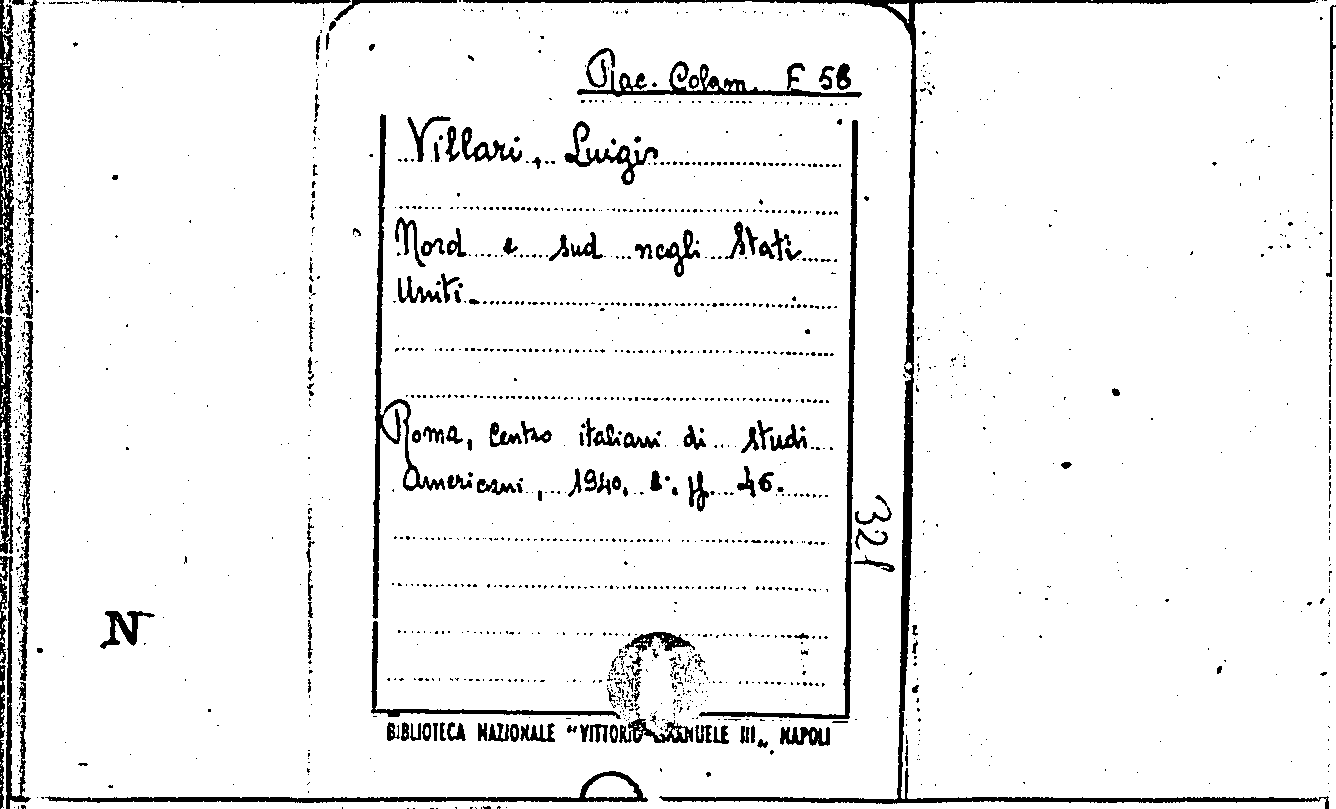 Rac. Colom. F 58
Villari, Luigi
Nord e sud negli Stati
Uniti.
Roma, Centro italiani di studi
Americani, 1940, 8°. pp. 46.
321
N
BIBLIOTECA NAZIONALE "VITTORIO EMANUELE III„ NAPOLI